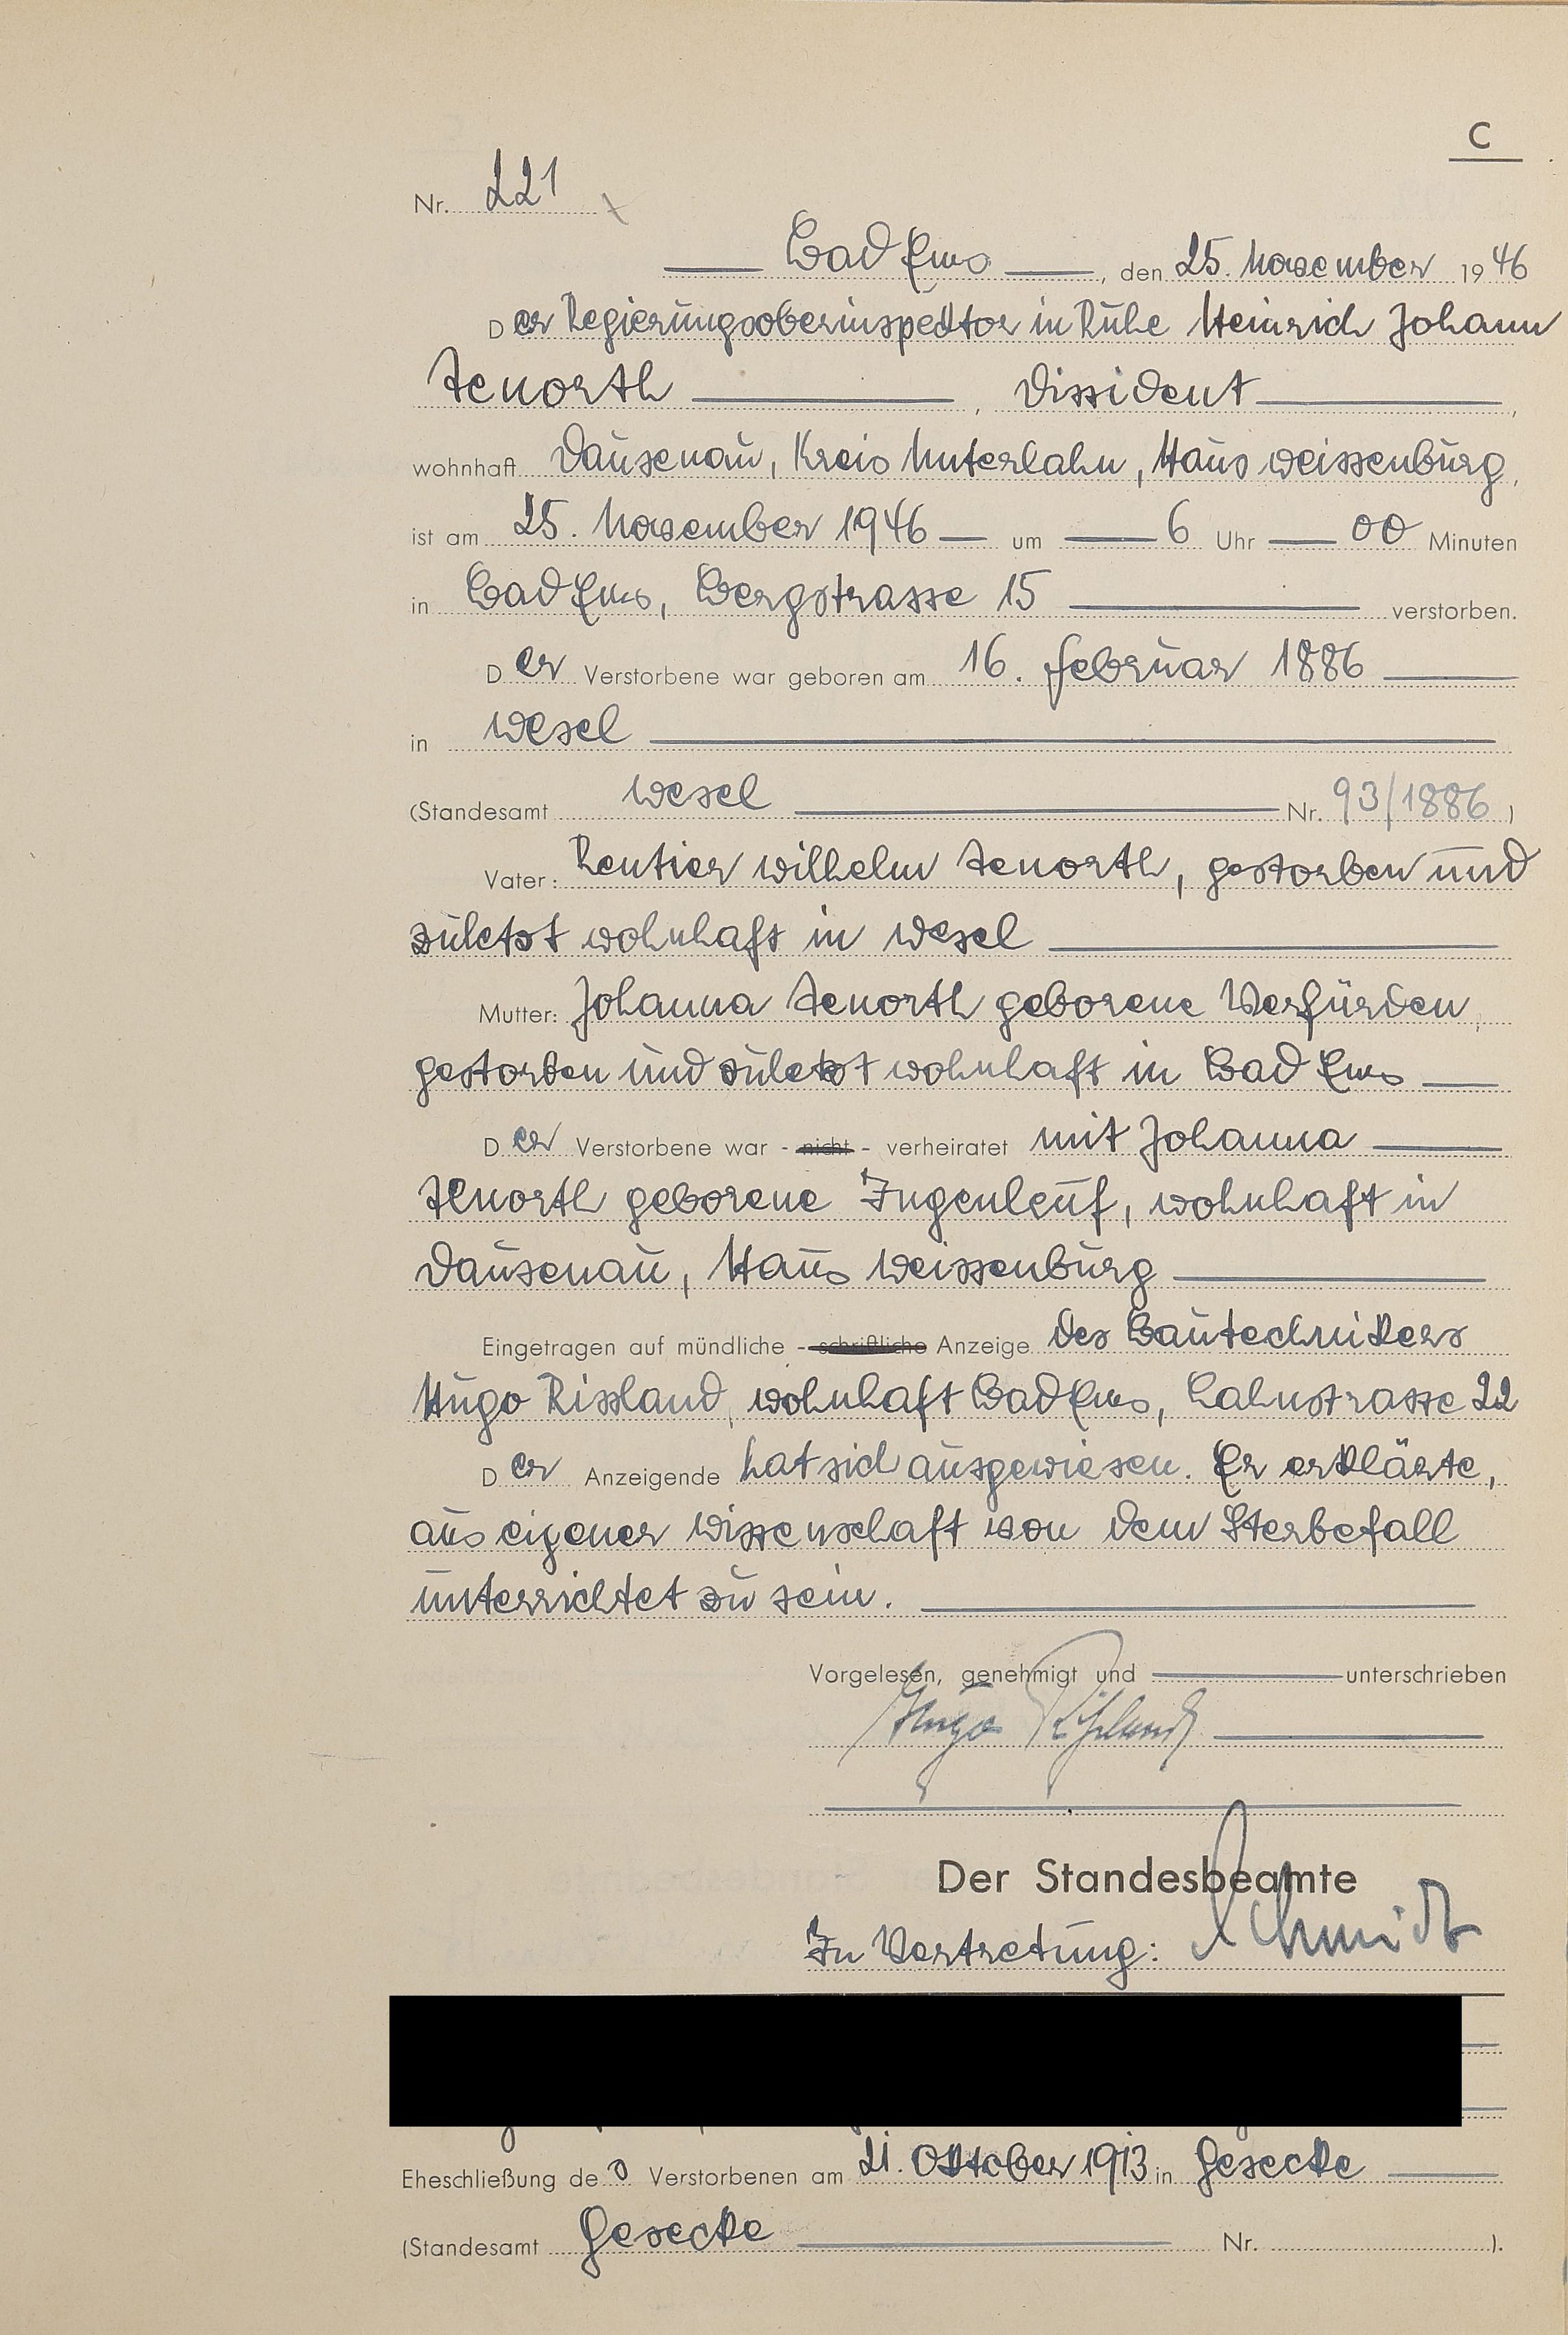 C
Nr. 221
Bad Ems, den 25. November 1946
Der Regierungsoberinspektor in Ruhe Heinrich Johann
Tenorth, Dissident,
wohnhaft Dausenau, Kreis Unterlahn, Haus Weissenburg,
ist am 25. November 1946 um 6 Uhr 00 Minuten
in Bad Ems, Bergstrasse 15 verstorben.
Der Verstorbene war geboren am 16. Februar 1886
in Wesel
(Standesamt Wesel Nr. 93/1886)
Vater: Rentier Wilhelm Tenorth, gestorben und
zuletzt wohnhaft in Wesel
Mutter: Johanna Tenorth geborene Verfürden,
gestorben und zuletzt wohnhaft in Bad Ems
Der Verstorbene war - nicht - verheiratet mit Johanna
Tenorth geborene Ingenleuf, wohnhaft in
Dausenau, Haus Weissenburg
Eingetragen auf mündliche - schriftliche Anzeige des Bautechnikers
Hugo Rissland, wohnhaft Bad Ems, Lahnstrasse 22
Der Anzeigende hat sich ausgewiesen. Er erklärte,
aus eigener Wissenschaft von dem Sterbefall
unterrichtet zu sein.
Vorgelesen, genehmigt und unterschrieben
Hugo Rißland
Der Standesbeamte
In Vertretung: Schmidt
Eheschließung des Verstorbenen am 21. Oktober 1913 in Gesecke
(Standesamt Gesecke Nr. ).